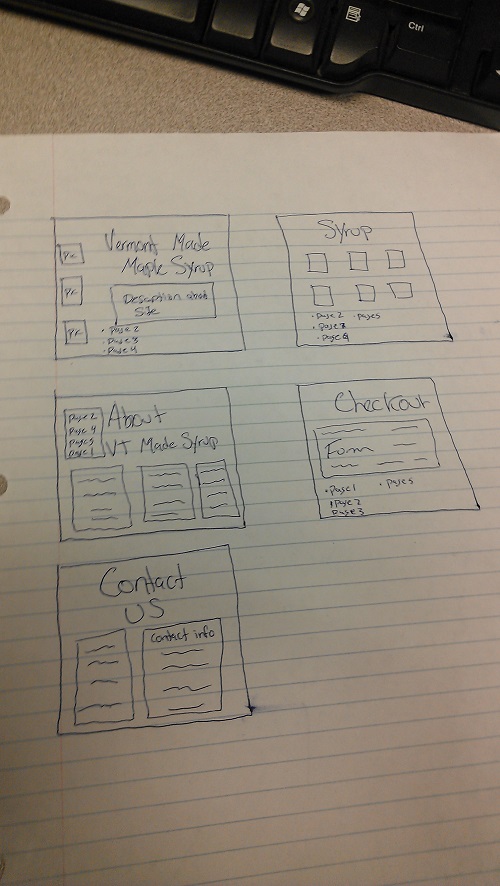 Ctrl
Vermont Made
Maple Syrup
Pic
Pic
Pic
Description about
Site
• Page 2
• Page 3
• Page 4
Syrup
• Page 2 • Page 5
• Page 3
• Page 4
Page 2
Page 4
Page 5
Page 1
About
VT Made Syrup
Checkout
Form
• Page 1 • Page 5
Page 2
Page 3
Contact
US
Contact info